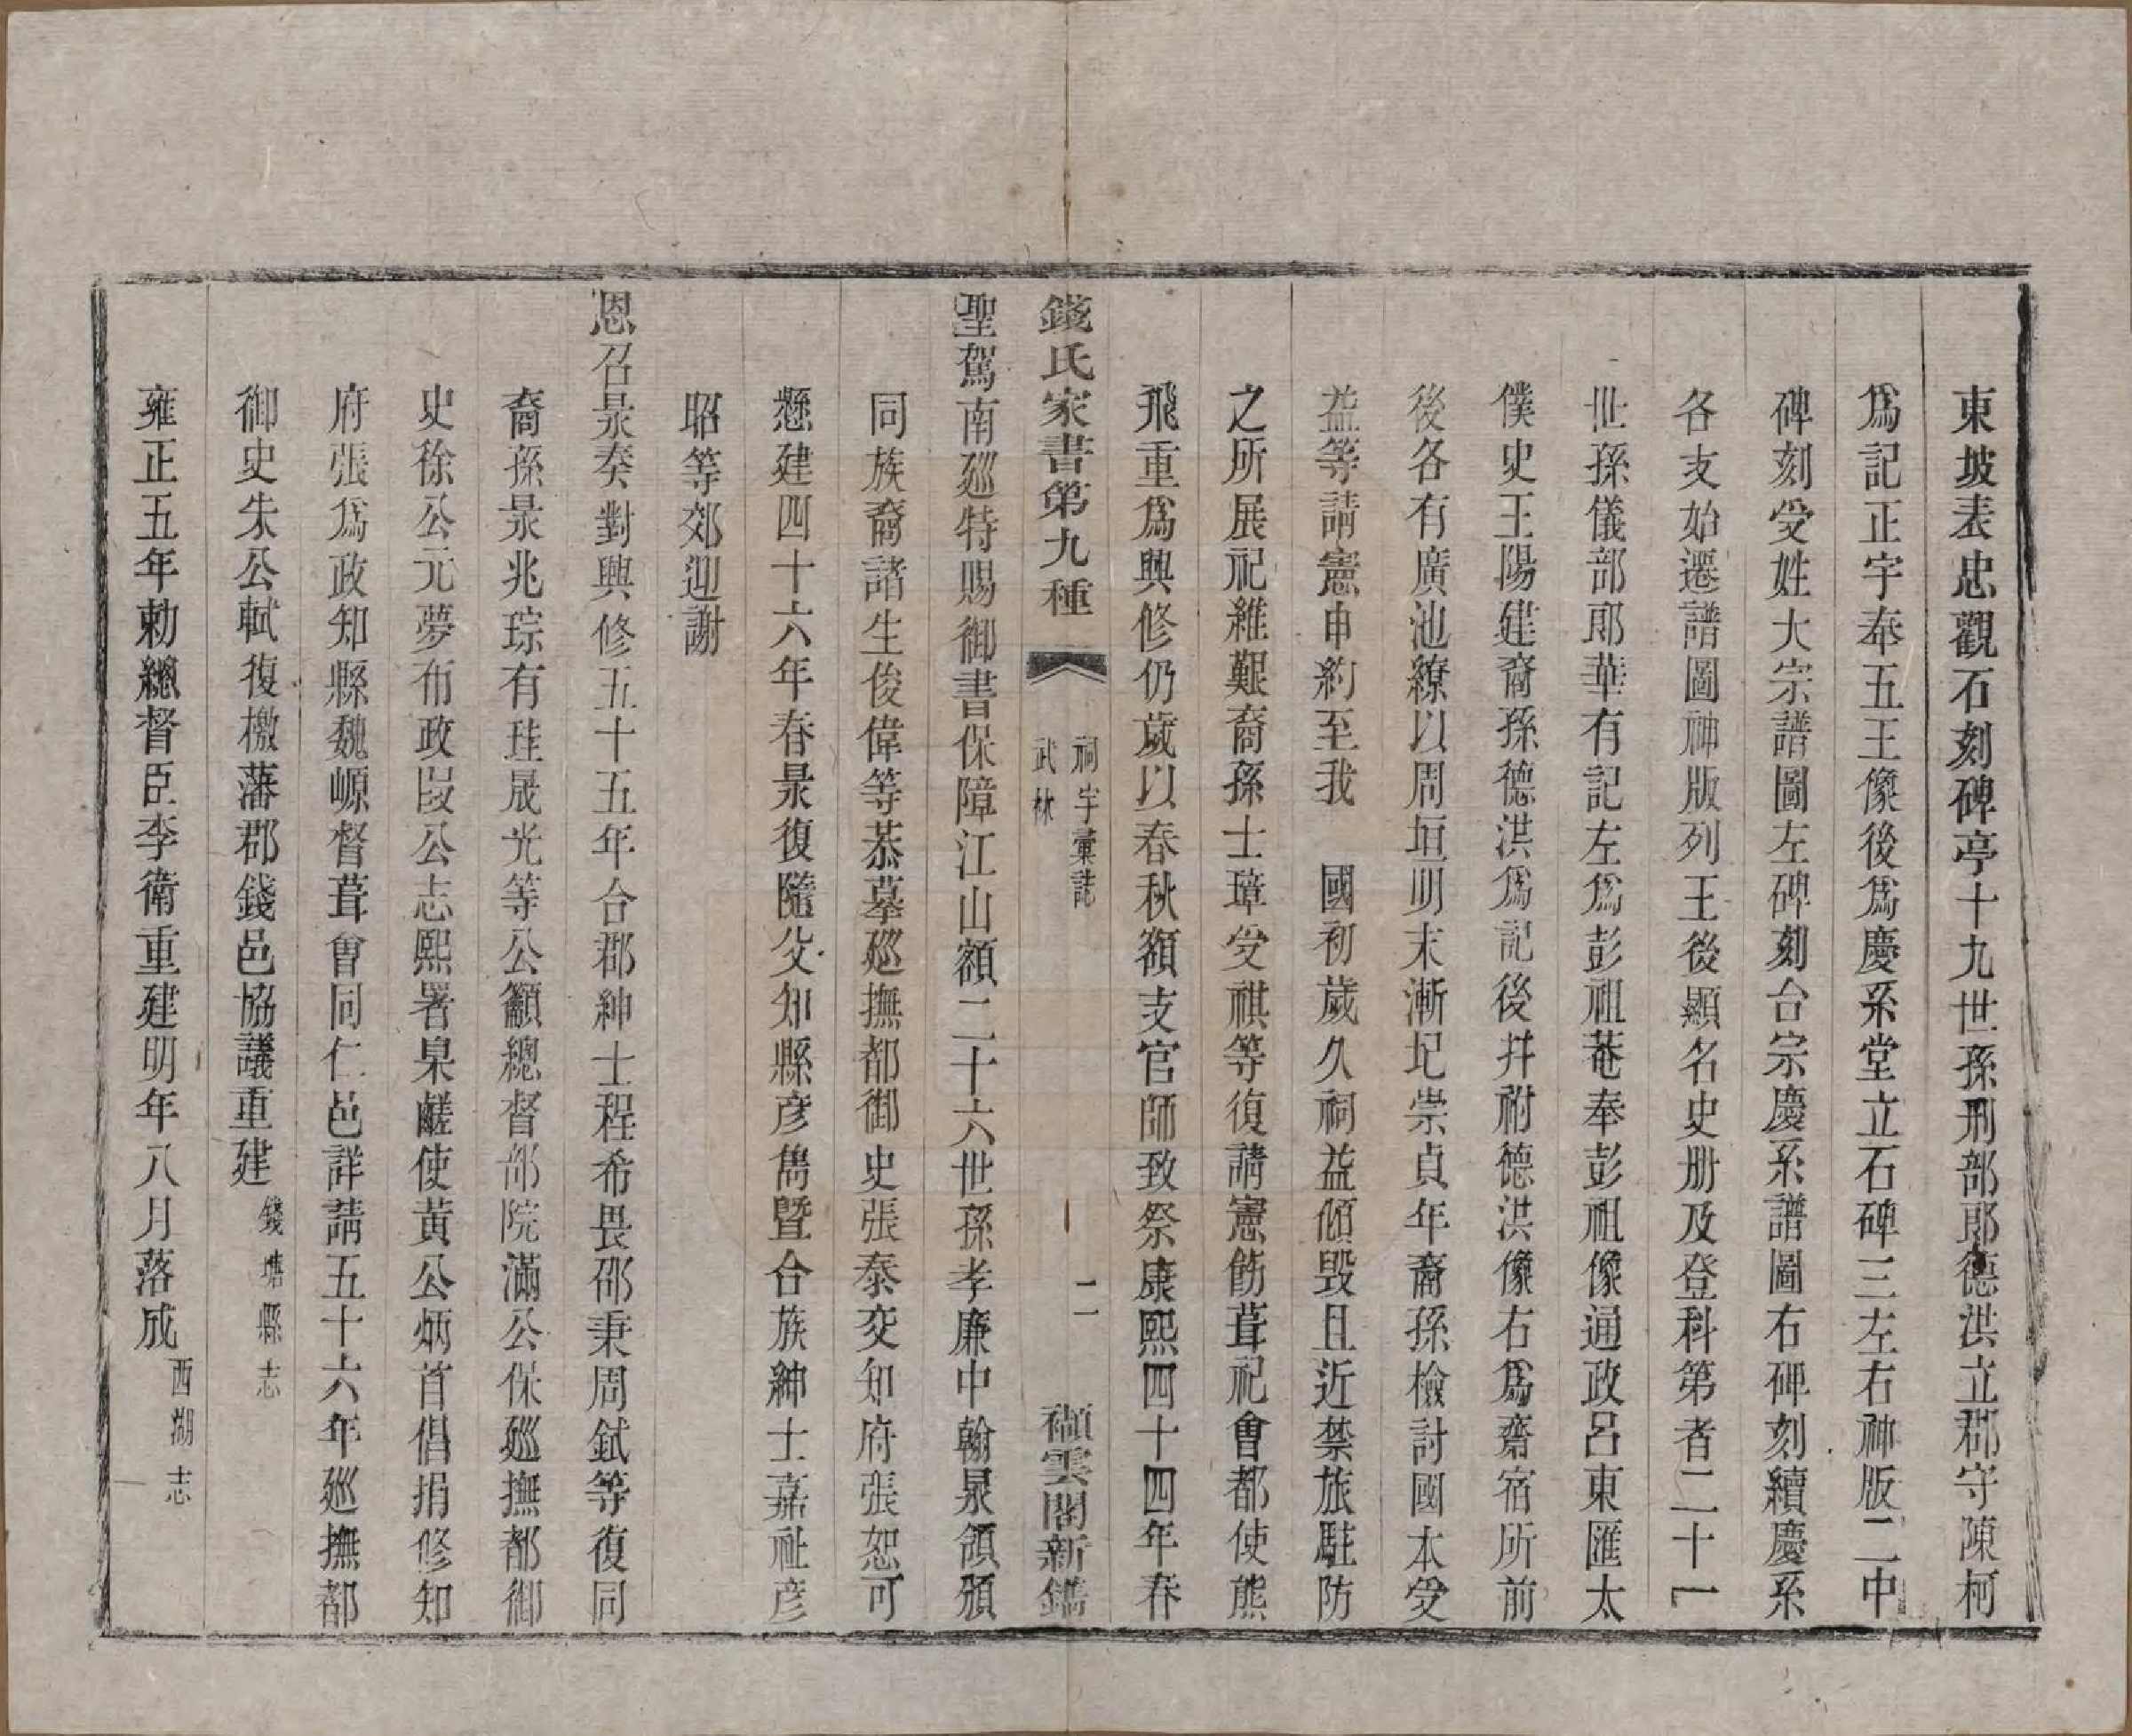 東坡表忠觀石刻碑亭十九世孫刑部郎德洪立郡守陳柯
爲記正宇奉五王像後爲慶系堂立石碑三左右神版二中
碑刻受姓大宗譜圖左碑刻台宗慶系譜圖右碑刻續慶系
各支始遷譜圖神版列王後顯名史册及登科第者二十一
世孫儀部郎華有記左爲彭祖菴奉彭祖像通政呂東匯太
僕史王陽建裔孫德洪爲記後并祔德洪像右爲齋宿所前
後各有廣池繚以周垣明末漸圮崇貞年裔孫檢討國本受
益等請憲申約至我　國初歲久祠益傾毀且近禁旅駐防
之所展祀維艱裔孫士璋受祺等復請憲飭葺祀會都使熊
飛重爲興修仍歲以春秋額支官師致祭康熙四十四年春
錢氏家書第九種
祠宇彙誌
武林
二
纈雲閣新鐫
聖駕南廵特賜御書保障江山額二十六世孫孝廉中翰泉頟頒
同族裔諸生俊偉等恭摹廵撫都御史張泰交知府張恕可
懸建四十六年春景復隨父知縣彦雋暨合族紳士嘉祉彦
昭等郊迎謝
恩召景奏對興修五十五年合郡紳士程希畏邵秉周鉽等復同
裔孫景兆琮有珪晟光等公籲總督部院滿公保廵撫都御
史徐公元夢布政段公志熙署臬鹺使黃公炳首倡捐修知
府張爲政知縣魏㟲督葺會同仁邑詳請五十六年廵撫都
御史朱公軾復檄藩郡錢邑協議重建錢塘縣志
雍正五年勅總督臣李衛重建明年八月落成西湖志